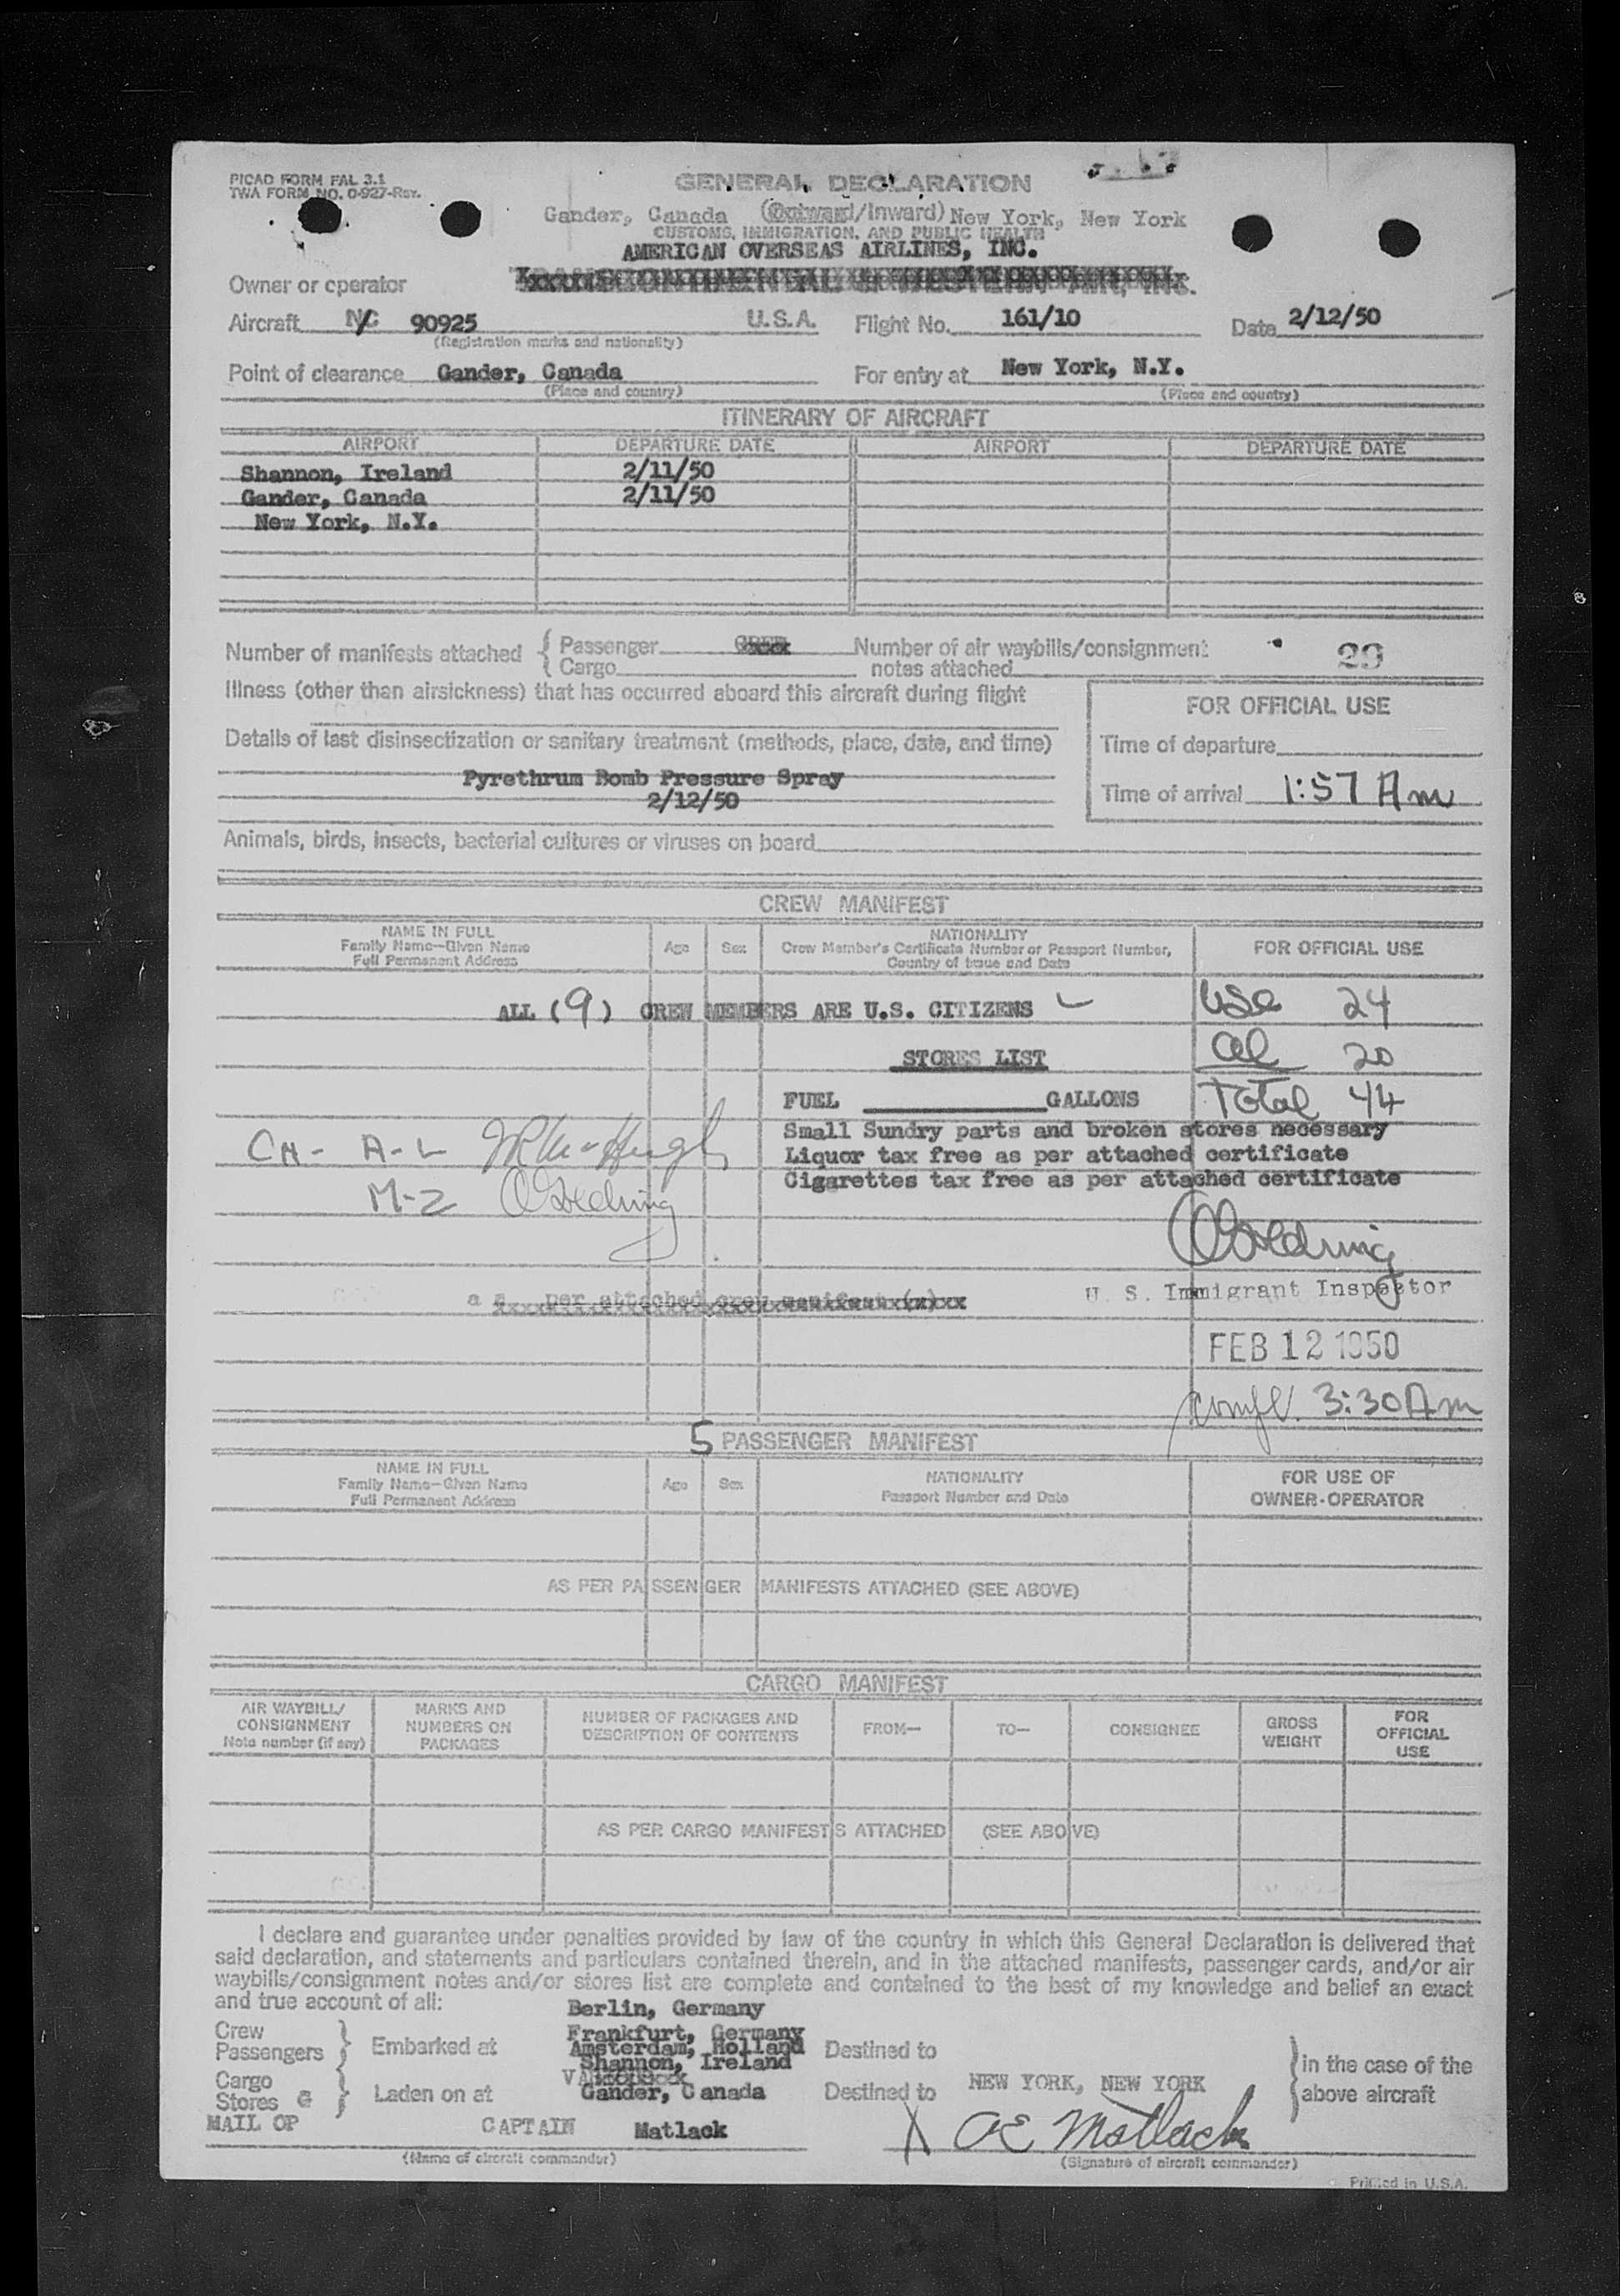 PICAO FORM FAL 3.1
TWA FORM NO. 0-927-Rev.
GENERAL DECLARATION
Gander, Canada (Outward/Inward) New York, New York
CUSTOMS, IMMIGRATION, AND PUBLIC HEALTH
AMERICAN OVERSEAS AIRLINES, INC.
Owner or operator
Aircraft NC 90925 U.S.A. Flight No. 161/10 Date 2/12/50
(Registration marks and nationality)
Point of clearance Gander, Canada For entry at New York, N.Y.
(Place and country) (Place and country)
ITINERARY OF AIRCRAFT
AIRPORT DEPARTURE DATE AIRPORT DEPARTURE DATE
Shannon, Ireland 2/11/50
Gander, Canada 2/11/50
New York, N.Y.
Number of manifests attached { Passenger Number of air waybills/consignment 29
{ Cargo notes attached
Illness (other than airsickness) that has occurred aboard this aircraft during flight
FOR OFFICIAL USE
Details of last disinsectization or sanitary treatment (methods, place, date, and time)
Time of departure
Pyrethrum Bomb Pressure Spray
2/12/50
Time of arrival 1:57 Am
Animals, birds, insects, bacterial cultures or viruses on board
CREW MANIFEST
NAME IN FULL
Family Name—Given Name
Full Permanent Address
Age Sex
NATIONALITY
Crew Member's Certificate Number or Passport Number,
Country of Issue and Date
FOR OFFICIAL USE
ALL (9) CREW MEMBERS ARE U.S. CITIZENS
USC 24
STORES LIST
al 20
FUEL GALLONS
Total 44
Small Sundry parts and broken stores necessary
CH- A-L
Liquor tax free as per attached certificate
Cigarettes tax free as per attached certificate
M-Z OGolding
OGolding
as per attached crew manifest (s)
U. S. Immigrant Inspector
FEB 12 1950
compl. 3:30 Am
5 PASSENGER MANIFEST
NAME IN FULL
Family Name—Given Name
Full Permanent Address
Age Sex
NATIONALITY
Passport Number and Date
FOR USE OF
OWNER-OPERATOR
AS PER PASSENGER MANIFESTS ATTACHED (SEE ABOVE)
CARGO MANIFEST
AIR WAYBILL/
CONSIGNMENT
Note number (if any)
MARKS AND
NUMBERS ON
PACKAGES
NUMBER OF PACKAGES AND
DESCRIPTION OF CONTENTS
FROM—
TO—
CONSIGNEE
GROSS
WEIGHT
FOR
OFFICIAL
USE
AS PER CARGO MANIFESTS ATTACHED (SEE ABOVE)
I declare and guarantee under penalties provided by law of the country in which this General Declaration is delivered that
said declaration, and statements and particulars contained therein, and in the attached manifests, passenger cards, and/or air
waybills/consignment notes and/or stores list are complete and contained to the best of my knowledge and belief an exact
and true account of all:
Berlin, Germany
Crew
Passengers } Embarked at
Frankfurt, Germany
Amsterdam, Holland
Shannon, Ireland
Destined to
} in the case of the
above aircraft
Cargo
Stores & } Laden on at Gander, Canada Destined to NEW YORK, NEW YORK
MAIL OP CAPTAIN Matlack X AE Matlack
(Name of aircraft commander) (Signature of aircraft commander)
Printed in U.S.A.